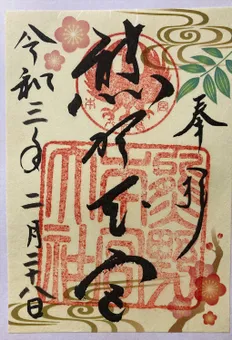 奉拝
熊野本宮
熊野
本宮
大社
令和三年 二月二十八日